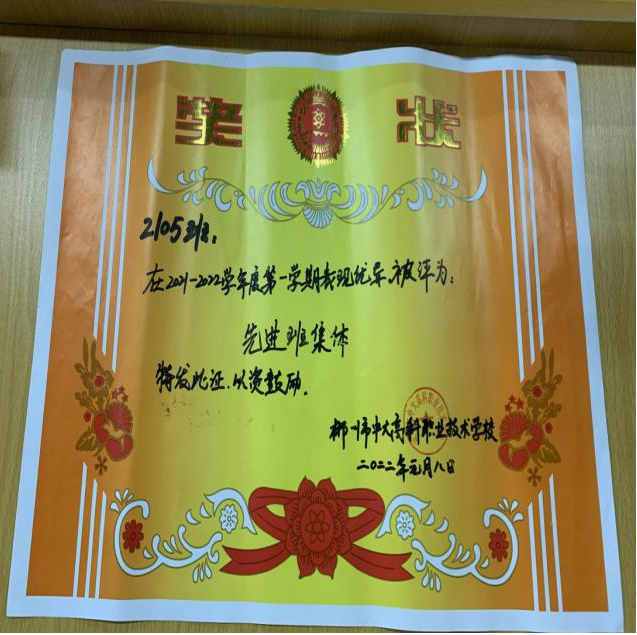 奖状
2105班：
在2021-2022学年度第一学期表现优异，被评为：
先进班集体
特发此证，以资鼓励。
郴州市中大高科职业技术学校
二〇二二年元月八日